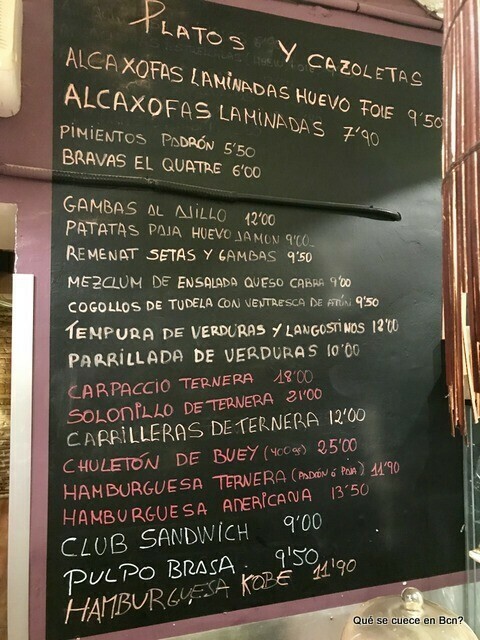 PLATOS Y CAZOLETAS
ALCAXOFAS LAMINADAS HUEVO FOIE 9'50
ALCAXOFAS LAMINADAS 7'90
PIMIENTOS PADRÓN 5'50
BRAVAS EL QUATRE 6'00
GAMBAS AL AJILLO 12'00
PATATAS PAJA HUEVO JAMON 9'00
REMENAT SETAS Y GAMBAS 9'50
MEZCLUM DE ENSALADA QUESO CABRA 9'00
COGOLLOS DE TUDELA CON VENTRESCA DE ATÚN 9'50
TEMPURA DE VERDURAS Y LANGOSTINOS 12'00
PARRILLADA DE VERDURAS 10'00
CARPACCIO TERNERA 18'00
SOLOMILLO DE TERNERA 21'00
CARRILLERAS DE TERNERA 12'00
CHULETÓN DE BUEY (400gr) 25'00
HAMBURGUESA TERNERA (PADRÓN ó PAJA) 11'90
HAMBURGUESA AMERICANA 13'50
CLUB SANDWICH 9'00
PULPO BRASA. 9'50
HAMBURGUESA KOBE 11'90
Qué se cuece en Bcn?